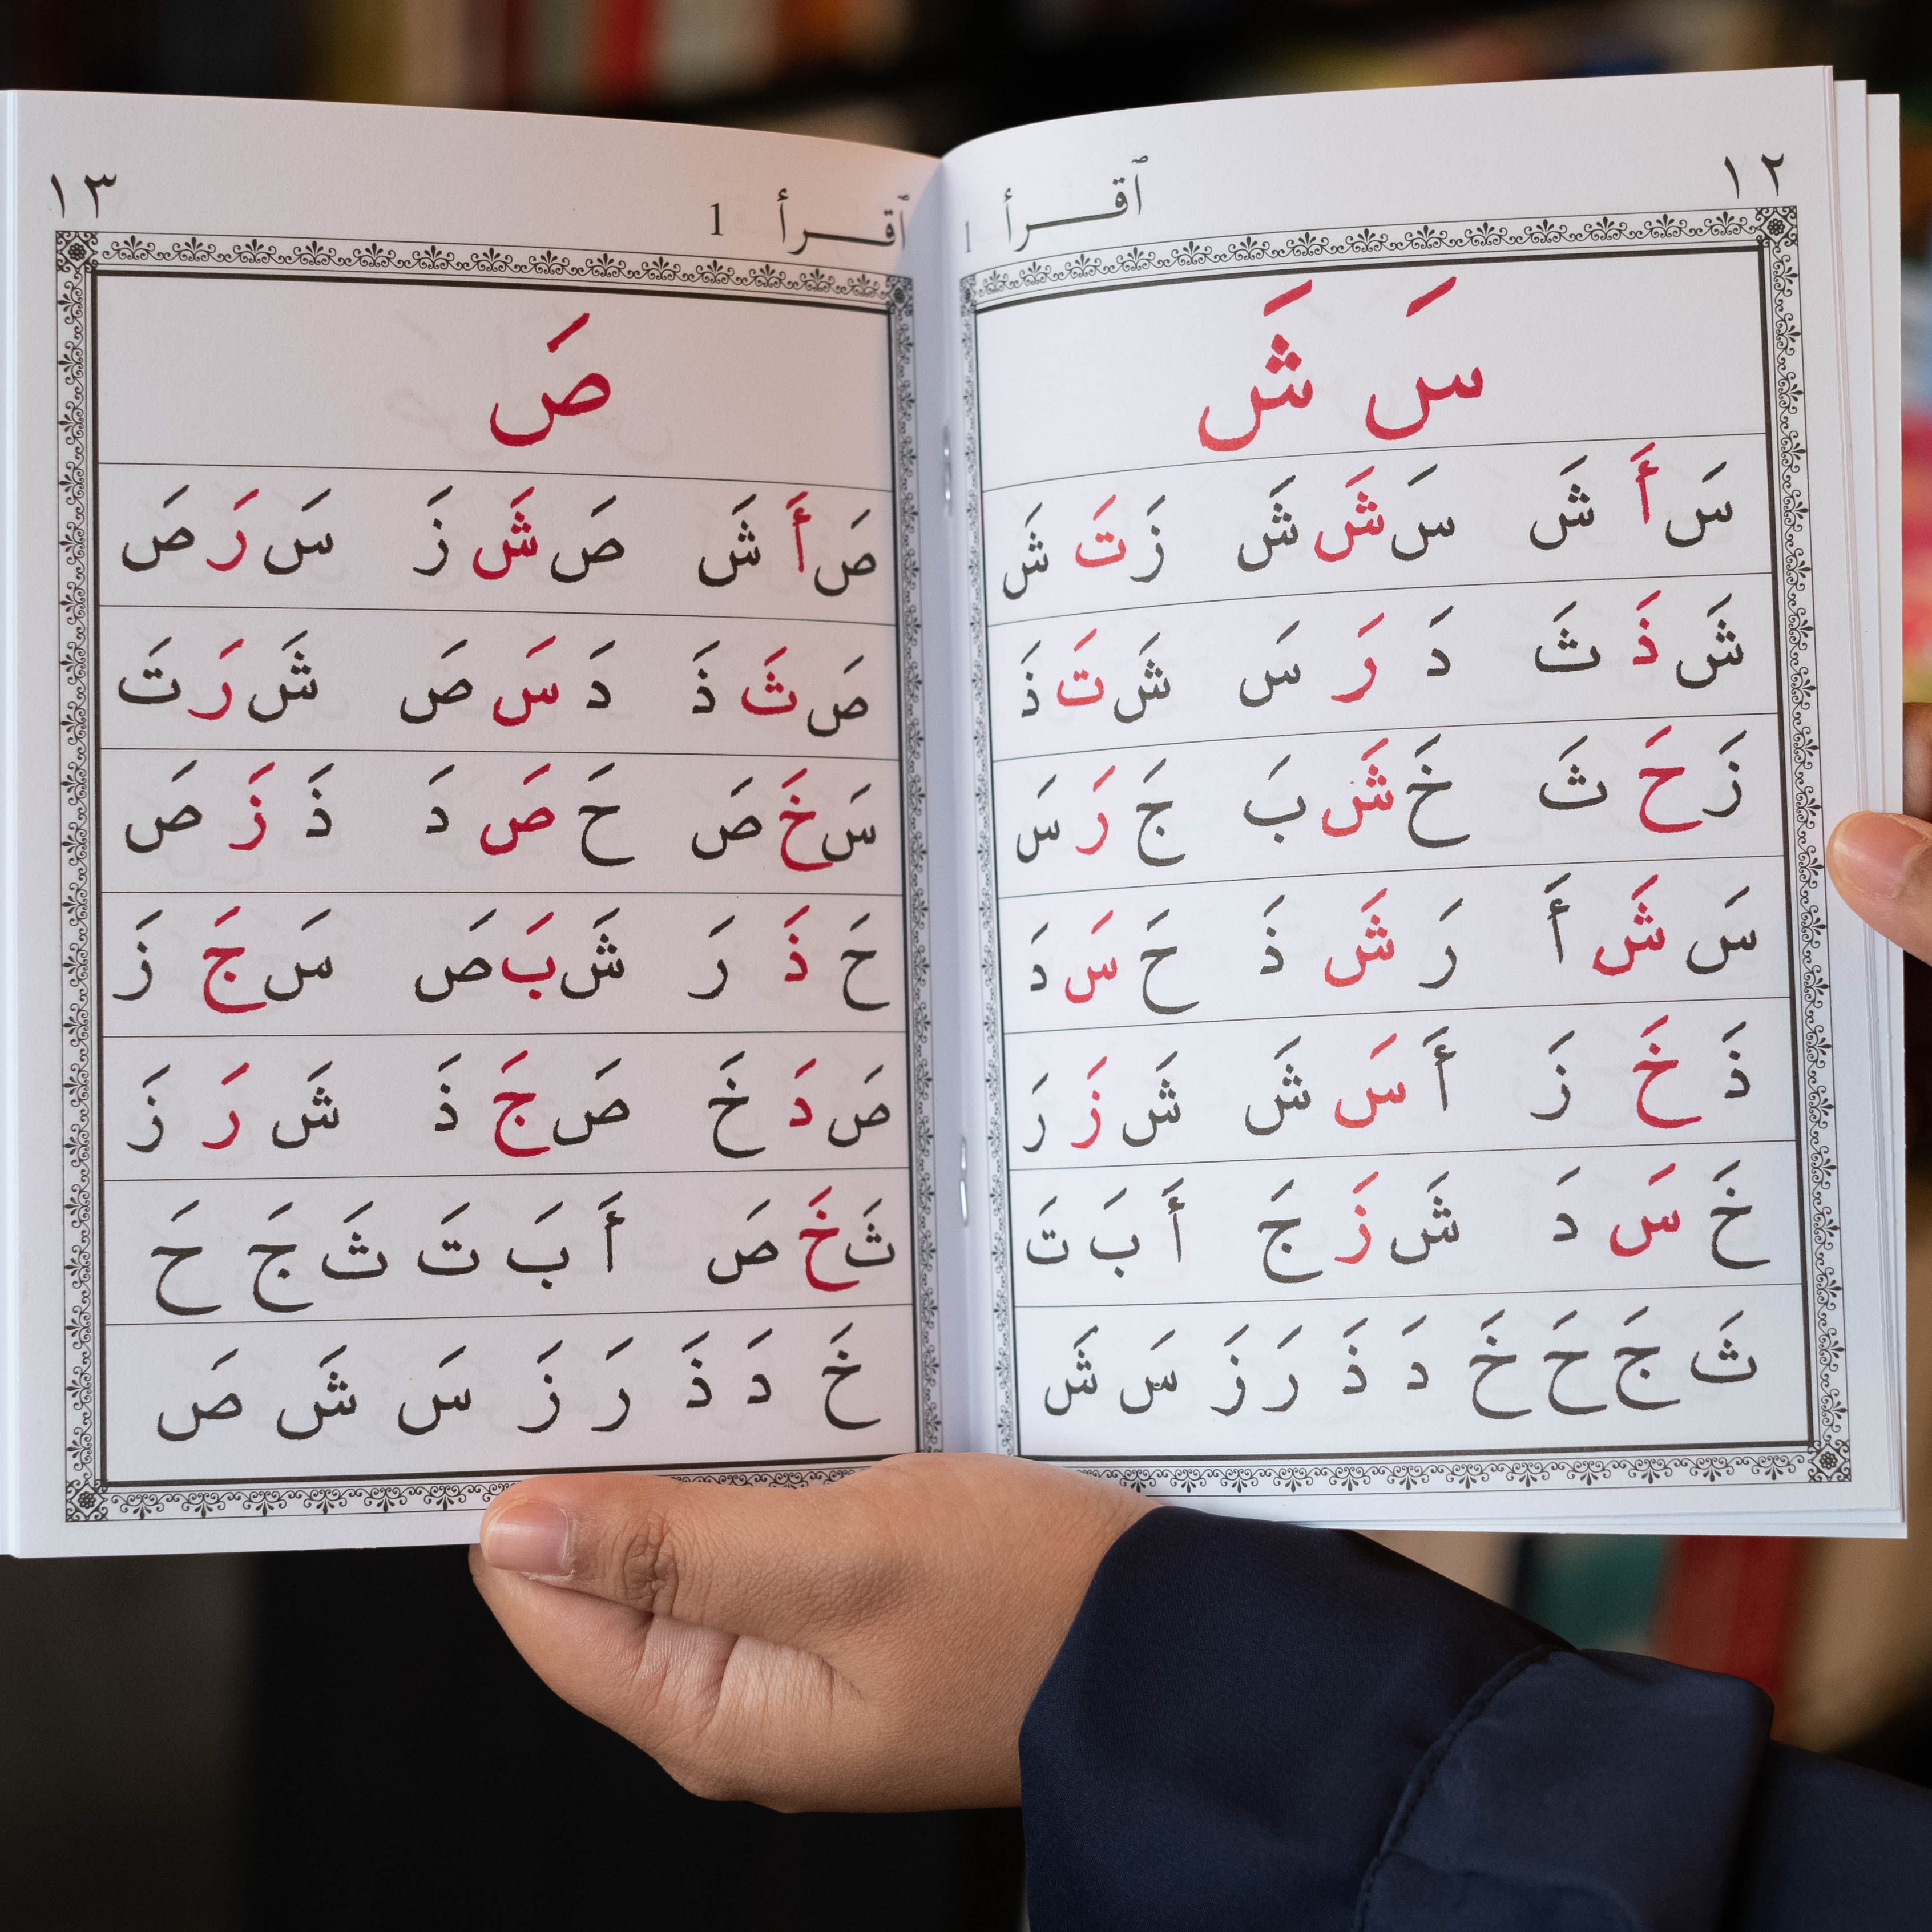 ١٢
ٱقـــرأ 1
سَ شَ
سَ أَ شَ سَ شَ شَ زَ تَ شَ
شَ ذَ ثَ دَ رَ سَ شَ تَ ذَ
زَ حَ ثَ خَ شَ بَ جَ رَ سَ
سَ شَ أَ رَ شَ ذَ حَ سَ دَ
ذَ خَ زَ أَ سَ شَ شَ زَ رَ
خَ سَ دَ شَ زَ جَ أَ بَ تَ
ثَ جَ حَ خَ دَ ذَ رَ زَ سَ شَ
ٱقـــرأ 1
١٣
صَ
صَ أَ شَ صَ شَ زَ سَ رَ صَ
صَ ثَ ذَ دَ سَ صَ شَ رَ تَ
سَ خَ صَ حَ صَ دَ ذَ زَ صَ
حَ ذَ رَ شَ بَ صَ سَ جَ زَ
صَ دَ خَ صَ جَ ذَ شَ رَ زَ
ثَ خَ صَ أَ بَ تَ ثَ جَ حَ
خَ دَ ذَ رَ زَ سَ شَ صَ